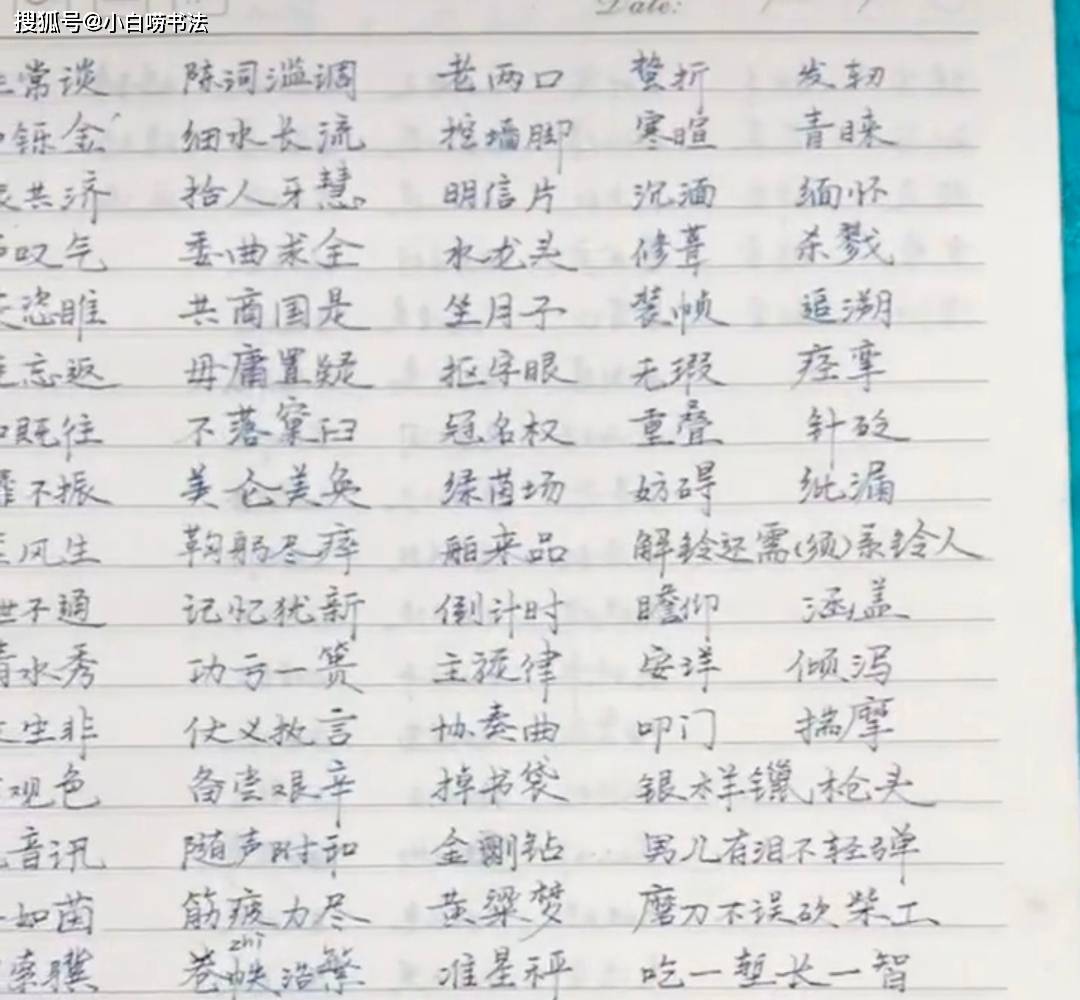 搜狐号@小白唠书法
Date:
常谈 陈词滥调 老两口 蝥折 发轫
铄金 细水长流 挖墙脚 寒暄 青睐
共济 拾人牙慧 明信片 沉湎 缅怀
叹气 委曲求全 水龙头 修葺 杀戮
恣睢 共商国是 坐月子 装帧 追溯
忘返 毋庸置疑 抠字眼 无瑕 痉挛
既往 不落窠臼 冠名权 重叠 针砭
不振 美仑美奂 绿茵场 妨碍 纰漏
风生 鞠躬尽瘁 舶来品 解铃还需(须)系铃人
不通 记忆犹新 倒计时 瞻仰 涵盖
水秀 功亏一篑 主旋律 安详 倾泻
生非 仗义执言 协奏曲 叩门 揣摩
观色 备尝艰辛 掉书袋 银样镴枪头
音讯 随声附和 金刚钻 男儿有泪不轻弹
如茵 筋疲力尽 黄粱梦 磨刀不误砍柴工
zhì
索骥 卷帙浩繁 准星秤 吃一堑长一智